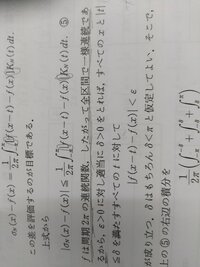 σₙ(x)−f(x)=1/2π ∫[f(x−t)−f(x)]Kₙ(t)dt.
この差を評価するのが目標である。
上式から
|σₙ(x)−f(x)|≦1/2π ∫|f(x−t)−f(x)|Kₙ(t)dt. ⑤
fは周期2πの連続関数，したがって全区間で一様連続であ
るから，ε>0に対し適当なδ>0をとれば，すべてのxと|t|
≦δを満たすすべてのtに対して
|f(x−t)−f(x)|<ε
が成り立つ．δはもちろんδ<πと仮定してよい．そこで，
上の⑤の右辺の積分を